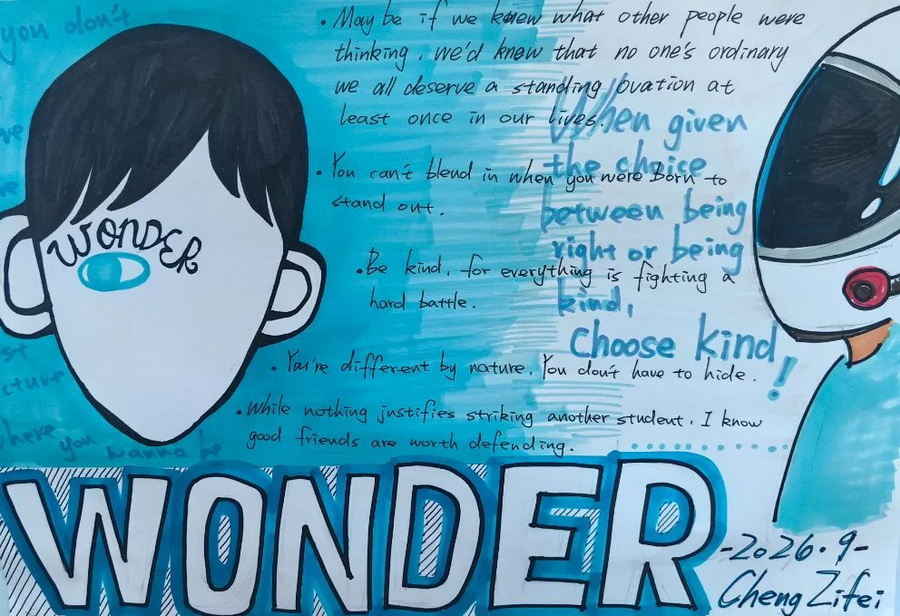 you don't
• May be if we knew what other people were
thinking, we'd knew that no one's ordinary
we all deserve a standing ovation at
least once in our lives.
When given
the choice
between being
right or being
kind,
Choose kind!
• You can't blend in when you were Born to
stand out.
• Be kind, for everything is fighting a
hard battle.
• You're different by nature, You don't have to hide.
• While nothing justifies striking another student. I know
good friends are worth defending.
WONDER
where you
wanna be
WONDER
-2026.9-
Cheng Zifei